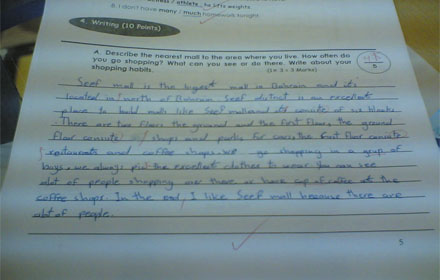 fitness / athlete, he lifts weights
8. I don't have many / much homework tonight
4. Writing (10 Points)
A. Describe the nearest mall to the area where you live. How often do
you go shopping? What can you see or do there. Write about your
shopping habits. (Lin 2 = 3 Marks)
5
Seef mall is the bigest mall in Bahrain and it's
located in north of Bahrain. Seef district is an excellent
place to build malls like Seef mall and its consiste of six blocks
There are two floors the ground and the first floor, the ground
floor consiste shops and parking for cars, the first floor consiste
restaurants and coffee shops. we go shopping in a grup of
buys. we always pick the excellent clothes to wear. You can see
alot of people shopping or have cup of coffee at the
coffee shops. In the end, I like Seef mall because there are
alot of people.
5